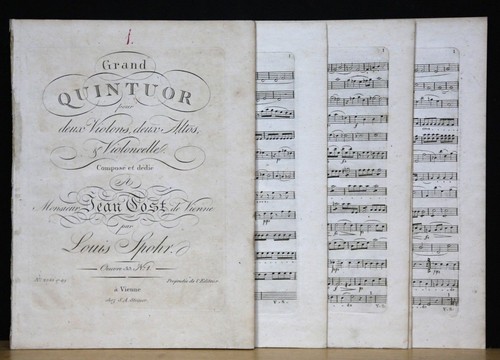 1.
Grand
QUINTUOR
pour
deux Violons, deux Altos,
& Violoncelle
Composé et dédié
A
Monsieur Jean Tost de Vienne
par
Louis Spohr.
Oeuvre 33. No. 1.
Propriété de l'Editeur
à Vienne
chez S. A. Steiner
1
1
1
pp
V. S.
V. S.
V. S.